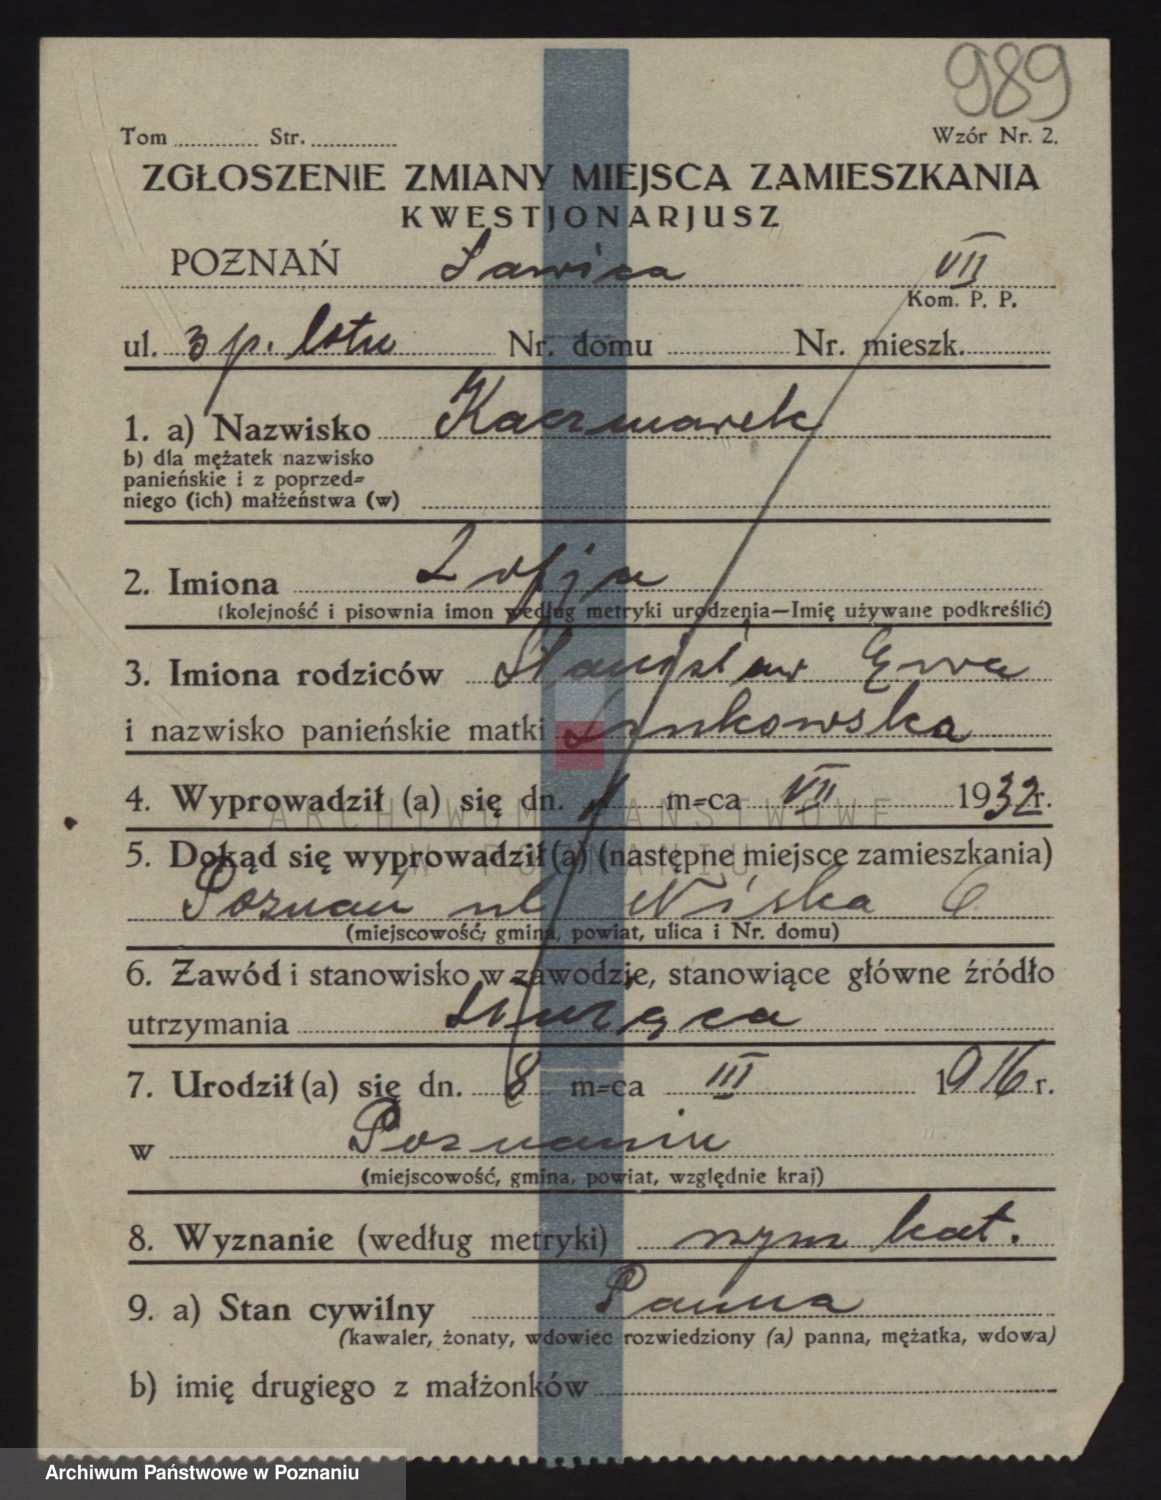 989
Tom ............ Str. ............ Wzór Nr. 2.
ZGŁOSZENIE ZMIANY MIEJSCA ZAMIESZKANIA
KWESTJONARJUSZ
POZNAŃ Ławica VII
Kom. P. P.
ul. 3 p. lotu Nr. domu ............ Nr. mieszk. ............
1. a) Nazwisko Kaczmarek
b) dla mężatek nazwisko
panieńskie i z poprzed=
niego (ich) małżeństwa (w)
2. Imiona Zofja
(kolejność i pisownia imon według metryki urodzenia—Imię używane podkreślić)
3. Imiona rodziców Stanisław Ewa
i nazwisko panieńskie matki
4. Wyprowadził (a) się dn. 1 m=ca VII 1932 r.
ARCHIWUM PAŃSTWOWE
W POZNANIU
5. Dokąd się wyprowadził (a) (następne miejsce zamieszkania)
Poznań ul Niska 6
(miejscowość, gmina, powiat, ulica i Nr. domu)
6. Zawód i stanowisko w zawodzie, stanowiące główne źródło
utrzymania Służąca
7. Urodził (a) się dn. 8 m=ca III 1916 r.
w Poznaniu
(miejscowość, gmina, powiat, względnie kraj)
8. Wyznanie (według metryki) rzym kat.
9. a) Stan cywilny Panna
(kawaler, żonaty, wdowiec rozwiedziony (a) panna, mężatka, wdowa)
b) imię drugiego z małżonków
Archiwum Państwowe w Poznaniu